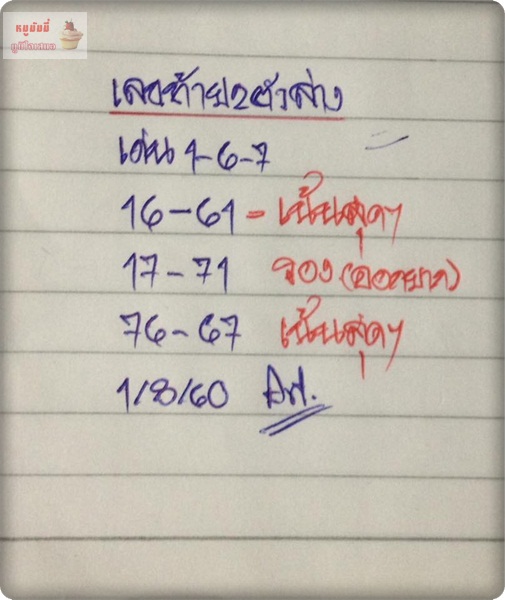 หมูมัฟฟี่
เลขท้าย2ตัวล่าง
เด่น 1-6-7
16-61 = เน้นสุดๆ
17-71 รอง (ออกยาก)
76-67 เน้นสุดๆ
1/8/60 Art.